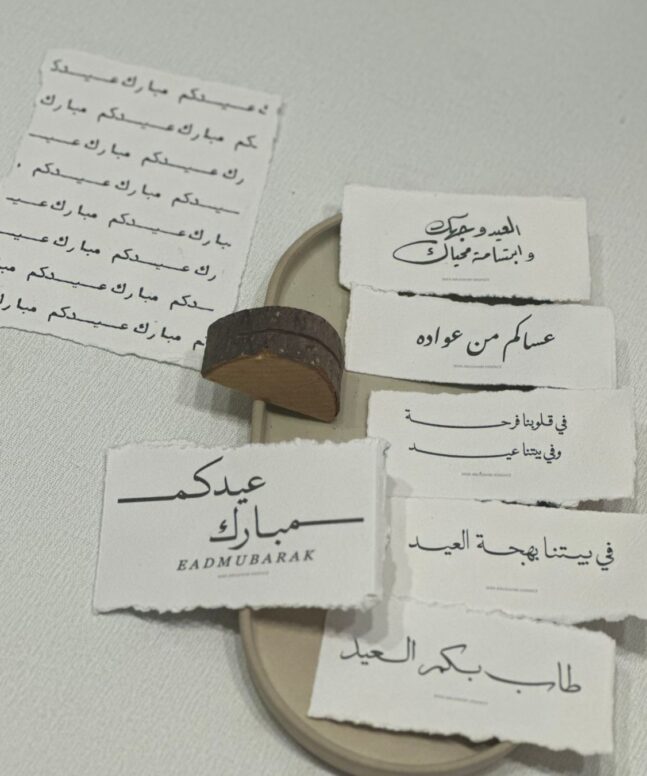 عيدكم مبارك عيدكم مبارك عيدكم
مبارك عيدكم مبارك عيدكم
مبارك عيدكم مبارك
عيدكم مبارك عيدكم
مبارك عيدكم مبارك
مبارك عيدكم مبارك
مبارك عيدكم مبارك عيدكم
مبارك عيدكم مبارك عيدكم
العيد وجهك
وابتسامة محياك
عساكم من عواده
في قلوبنا فرحة
وفي بيتنا عيد
عيدكم
مبارك
EADMUBARAK
في بيتنا بهجة العيد
طاب بكم العيد